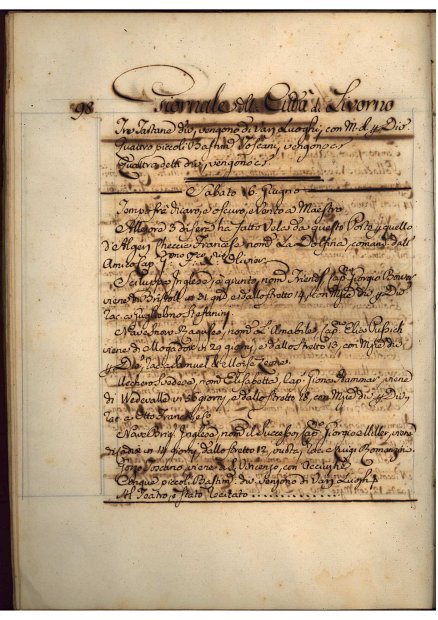 98 Giornale della Città di Livorno
Tre Tartane div. vengono di Varj Luoghi, con M. d. p Div.
Quattro piccoli Bastim. Toscani, vengono c. s.
Quattro detti div. vengono c. s.
Sabato 16 Giugno
Tempo frà chiaro, e oscuro, e Vento a Maestro
Allegre 3 di sera ha fatto Vela da questo Porto p quello
d'Algeri Francese nom. La Dolfina, comand. dall'
Cap.
Sciluppo Inglese è giunto, nom. Friends Cap. Giorgio
viene di Bristoll in 31 gni e dallo stretto 14, con Mje div. p Div.
rac. a Guglielmo Stefanini
Nave Raguseo, nom. L'Amabile, Cap. Elia
viene di Mogador in 29 giorni, e dallo stretto 13, con Mje div.
p Div. rac. a Samuel & Moise Leone
Svedese, nom. Elisabetta, Cap. Giona Hammar, viene
di Wedevalla in giorni, e dallo stretto 18, con Mje div. p Div.
rac. e Otto Franchese
Nave Inglese, nom. il Successo, Cap. Giorgio Miller, viene
di in 14 giorni, dallo stretto 12, vuota, rac. e Luigi
Gozo Toscano viene da S. Vincenzo, con Acciughe
Cinque piccoli Bastim. div. vengono di Varj Luoghi
Al Teatro, è stato Recitato ..................